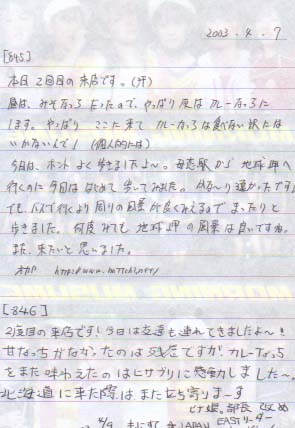 2003. 4. 7
[845]
本日2回目の来店です。(汗)
昼は、みそなっちだったので、やっぱり夜はカレーなっちに
します。やっぱり ここに来て カレーなっちは食べない訳には
いかないんで! (個人的には)
今日は、ホント よく歩きましたよ〜。母恋駅から 地球岬へ
行くのに今回は はじめて歩いてみました。かな〜り遠かったです!
でも、バスで行くより周りの風景が良くみえるので まったりと
歩きました。何度みても 地球岬の風景は良いですね。
また、来たいと思いました。
[846]
2度目の来店です!今日は友達も連れてきましたよ〜!
甘なっちがなかったのは残念ですが、カレーなっち
をまた味わえたのはヒサブリに感動しました〜。
北海道に来た際はまた立ち寄りま〜す